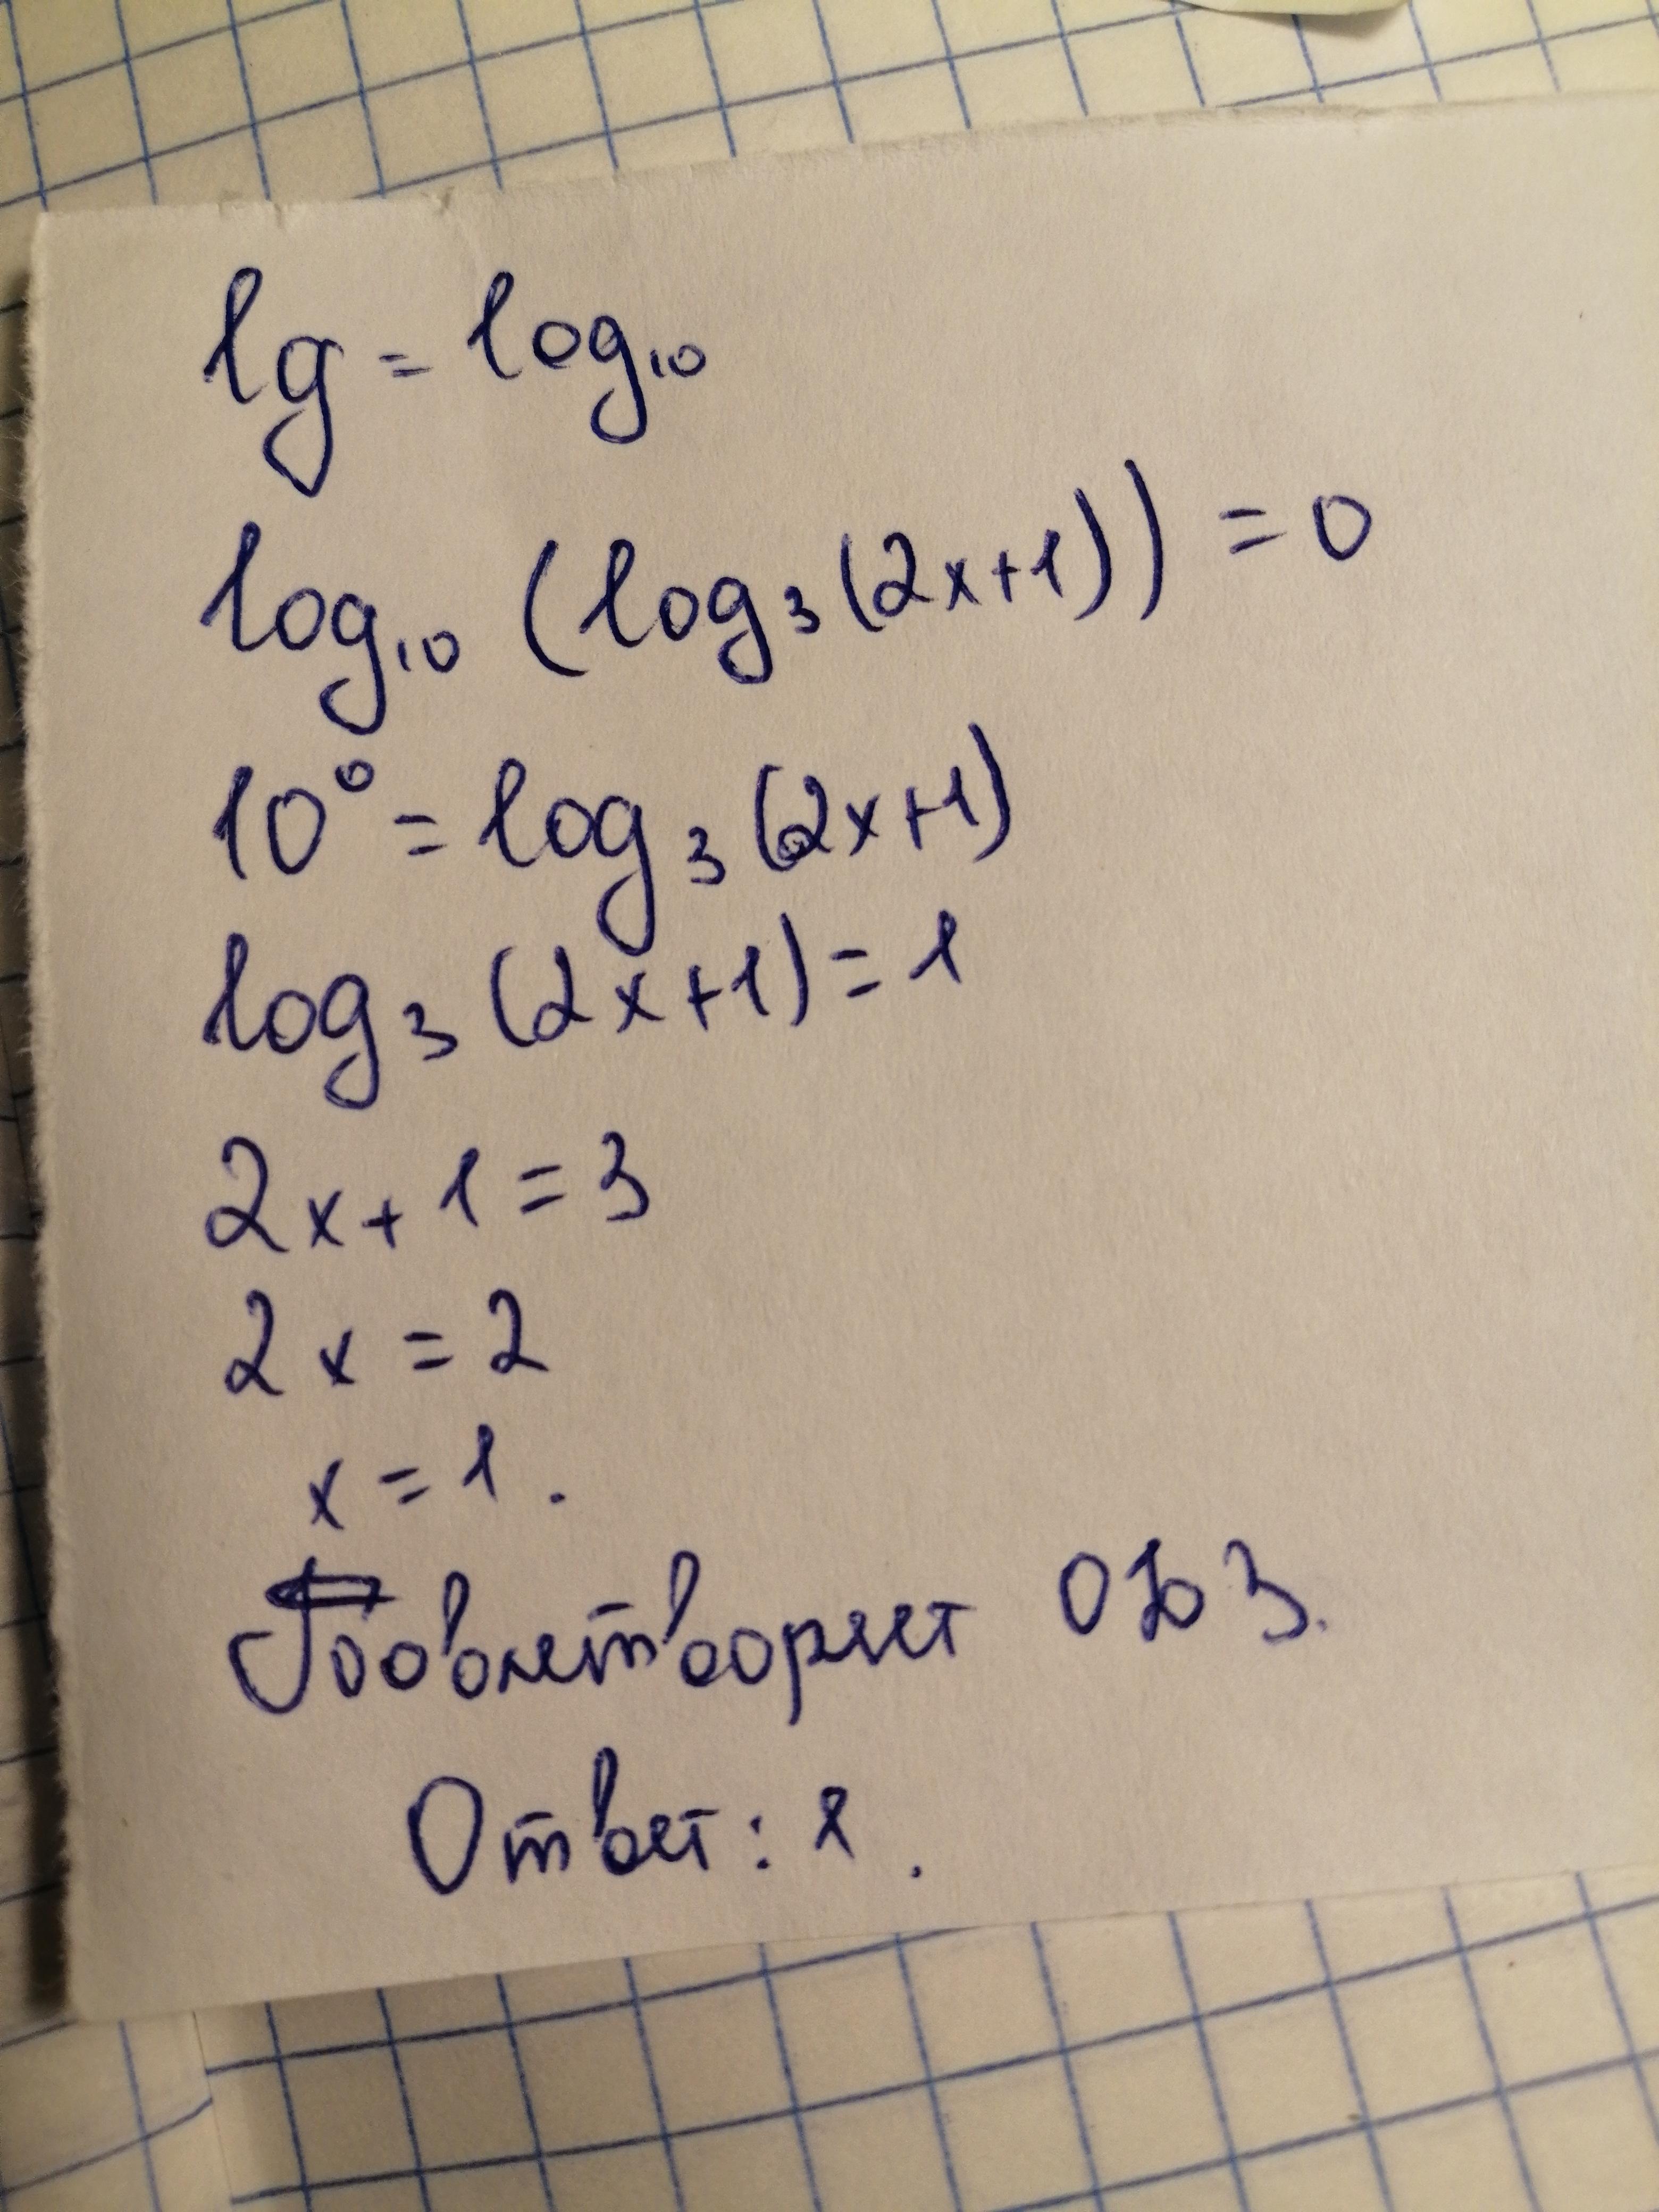 lg = log₁₀
log₁₀ (log₃(2x+1)) = 0
10⁰ = log₃(2x+1)
log₃(2x+1) = 1
2x + 1 = 3
2x = 2
x = 1.
Удовлетворяет ОДЗ.
Ответ: 1.